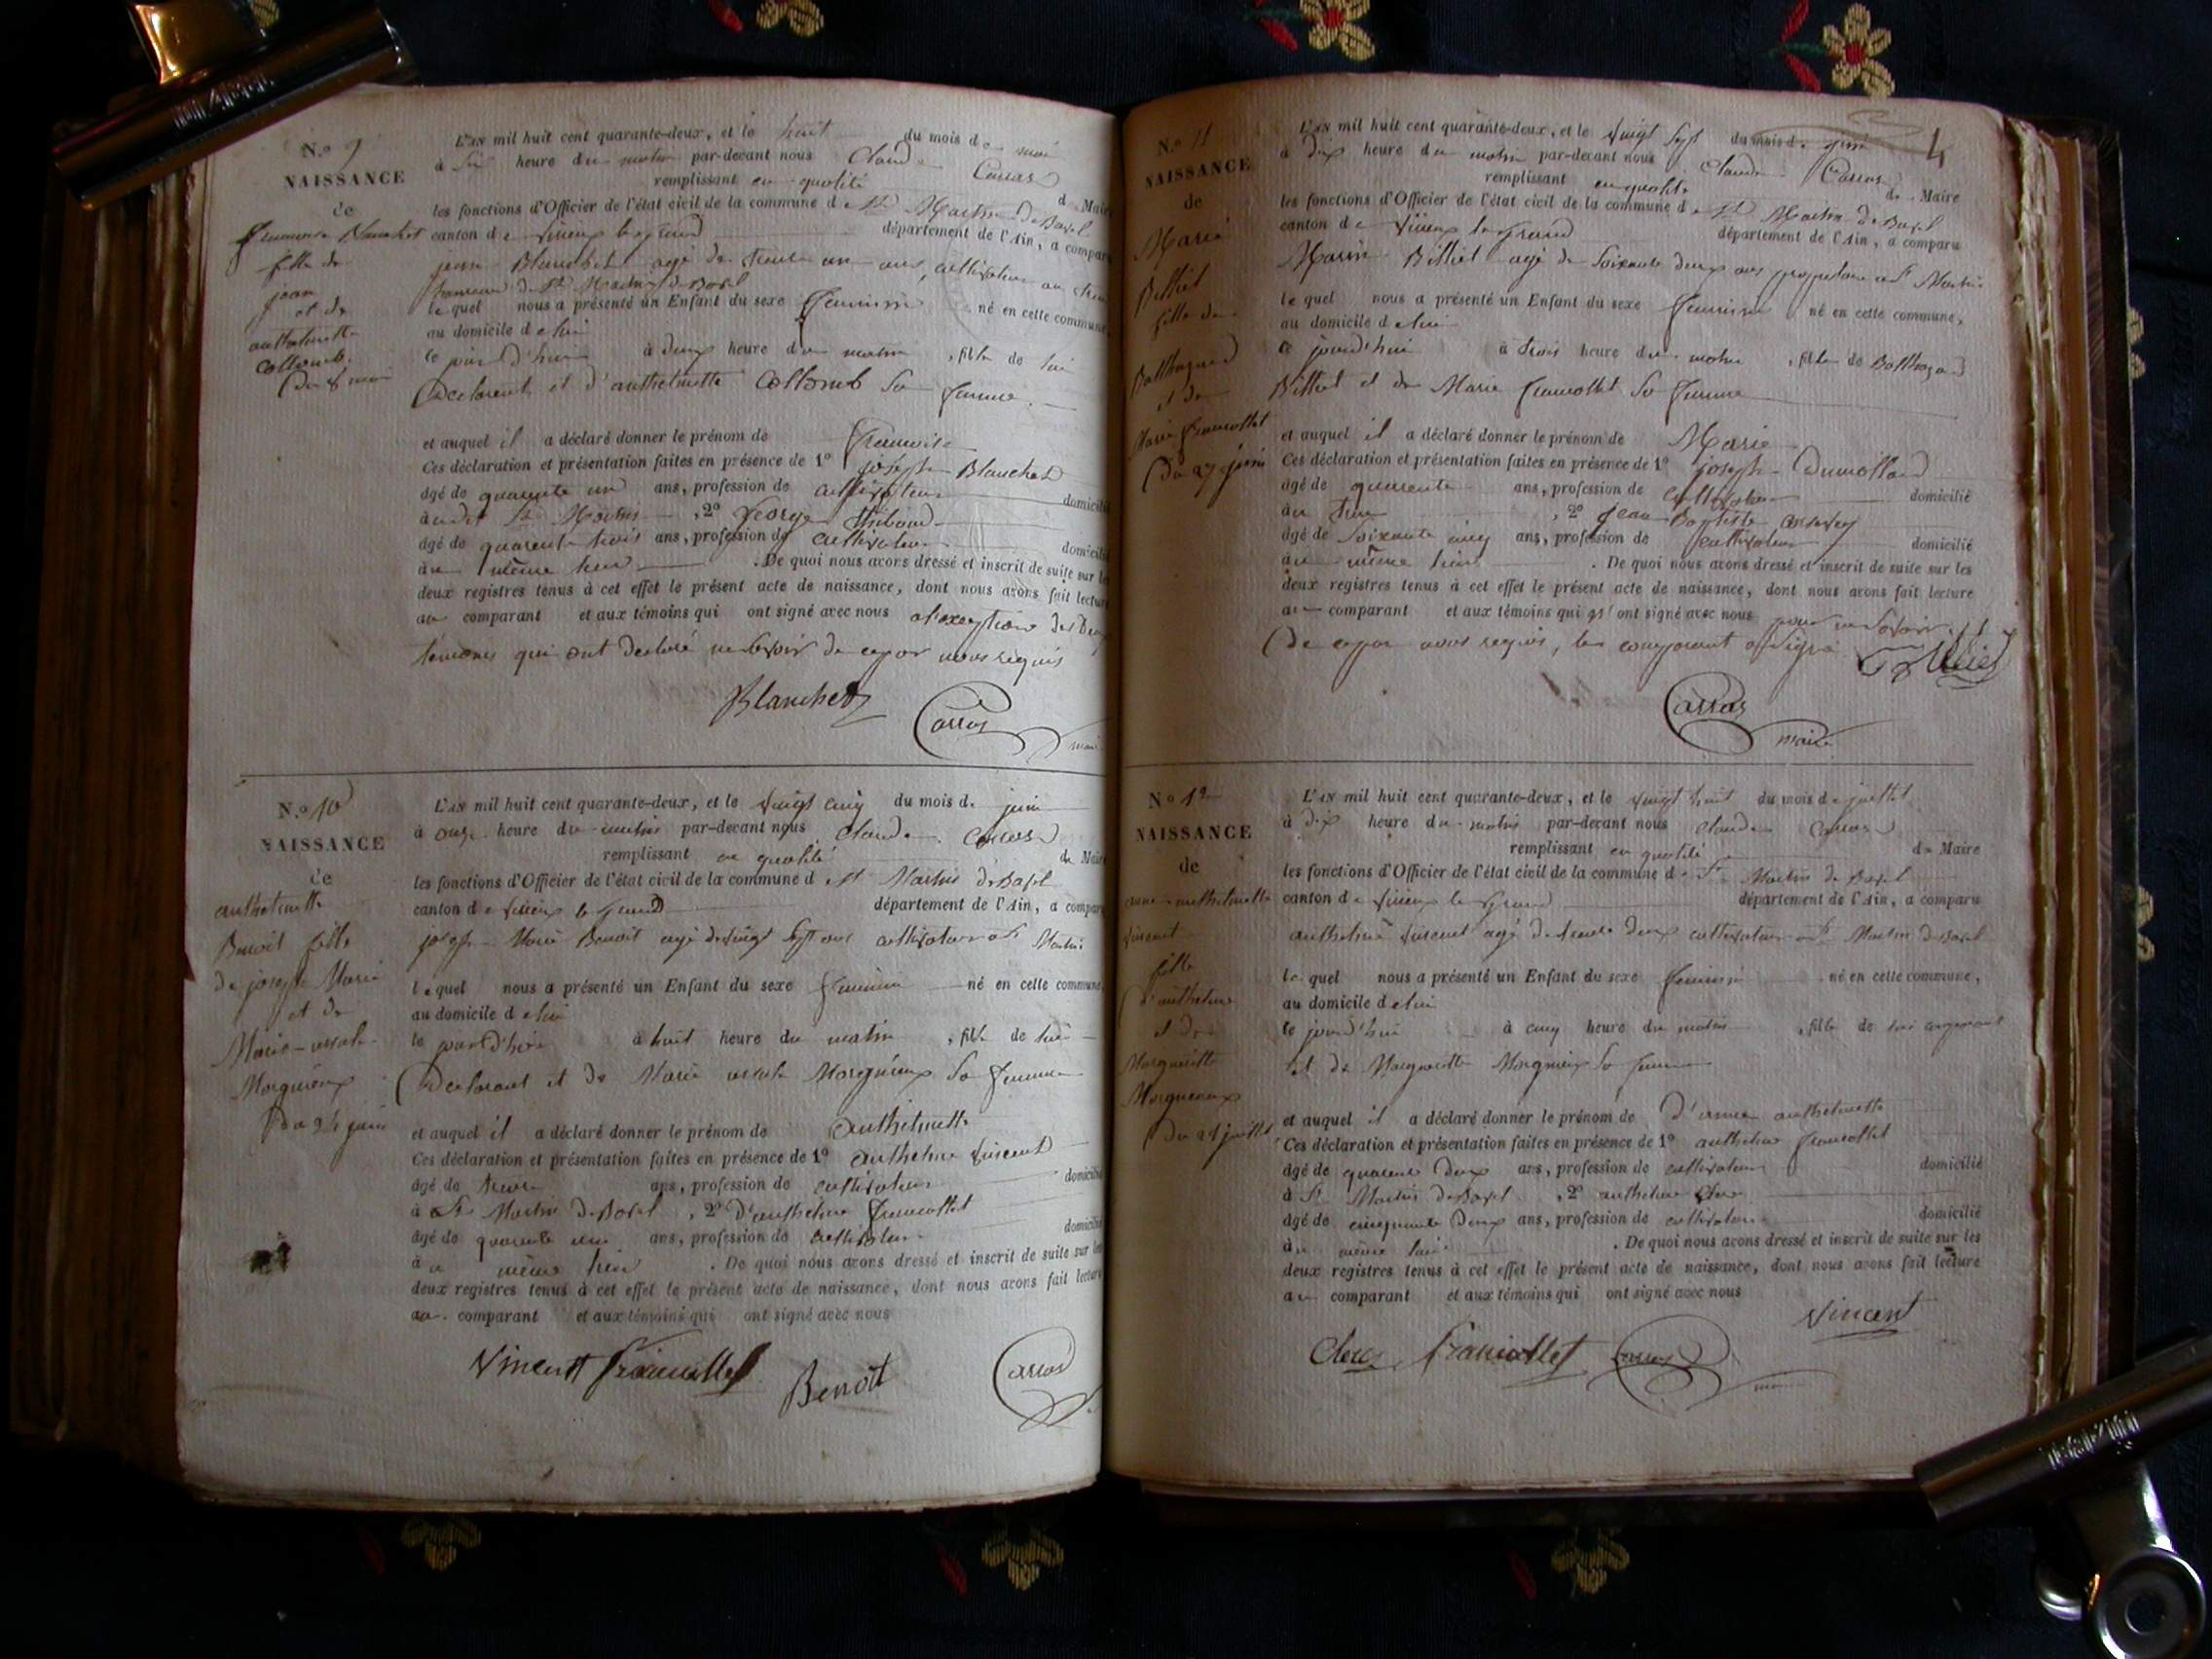 N.o 9
NAISSANCE
de
françoise Blanchet
fille de
jean
et de
anthelmette
Collomb.
du 8 mai
L'AN mil huit cent quarante-deux, et le huit du mois de mai
à six heure du matin par-devant nous Claude Carras
remplissant en qualité de Maire
les fonctions d'Officier de l'état civil de la commune de St Martin de Bavel
canton de virieux le grand département de l'Ain, a comparu
jean Blanchet agé de trente un ans, cultivateur au
hameau de St Martin de Bavel
lequel nous a présenté un Enfant du sexe feminin né en cette commune,
au domicile de lui
ce jour d'hui à deux heure du matin, fille de lui
Déclarant et d'anthelmette Collomb sa femme.
et auquel il a déclaré donner le prénom de françoise
Ces déclaration et présentation faites en présence de 1o joseph Blanchet
âgé de quarante un ans, profession de cultivateur domicilié
à St Martin, 2o George thibaud
âgé de quarante trois ans, profession de cultivateur domicilié
au même lieu. De quoi nous avons dressé et inscrit de suite sur les
deux registres tenus à cet effet le présent acte de naissance, dont nous avons fait lecture
au comparant et aux témoins qui ont signé avec nous a l'exception des Deux
témoins qui ont declaré ne savoir de ce par nous requis
Blanchet Carras maire
N.o 10
NAISSANCE
de
anthelmette
Benoit fille
de joseph Marie
et de
Marie ursule
Morgnieux
du 25 juin
L'AN mil huit cent quarante-deux, et le vingt cinq du mois de juin
à onze heure du matin par-devant nous Claude Carras
remplissant en qualité de Maire
les fonctions d'Officier de l'état civil de la commune de St Martin de Bavel
canton de virieux le Grand département de l'Ain, a comparu
joseph Marie Benoit agé de vingt sept ans cultivateur a St Martin
lequel nous a présenté un Enfant du sexe feminin né en cette commune,
au domicile de lui
le jourd'hui à huit heure du matin, fille de lui
Déclarant et de Marie ursule Morgnieux sa femme
et auquel il a déclaré donner le prénom de anthelmette
Ces déclaration et présentation faites en présence de 1o anthelme vincent
âgé de trente ans, profession de cultivateur domicilié
à St Martin de Bavel, 2o d'anthelme francollet
âgé de quarante un ans, profession de cultivateur domicilié
au même lieu. De quoi nous avons dressé et inscrit de suite sur les
deux registres tenus à cet effet le présent acte de naissance, dont nous avons fait lecture
au comparant et aux témoins qui ont signé avec nous
Vincent francollet Benoit Carras
4
N.o 11
NAISSANCE
de
Marie
Billiet
fille de
Balthazard
et de
Marie francollet
du 27 juin
L'AN mil huit cent quarante-deux, et le vingt sept du mois de juin
à dix heure du matin par-devant nous Claude Carras
remplissant en qualité de Maire
les fonctions d'Officier de l'état civil de la commune de St Martin de Bavel
canton de virieux le grand département de l'Ain, a comparu
Marin Billiet agé de soixante deux ans propriétaire a St Martin
lequel nous a présenté un Enfant du sexe feminin né en cette commune,
au domicile de lui
ce jourd'hui à trois heure du matin, fille de Balthazard
Billiet et de Marie francollet sa femme
et auquel il a déclaré donner le prénom de Marie
Ces déclaration et présentation faites en présence de 1o joseph Dumolland
âgé de quarante ans, profession de cultivateur domicilié
au lieu, 2o jean Baptiste
âgé de soixante cinq ans, profession de cultivateur domicilié
au même lieu. De quoi nous avons dressé et inscrit de suite sur les
deux registres tenus à cet effet le présent acte de naissance, dont nous avons fait lecture
au comparant et aux témoins qui n'ont signé avec nous pour ne savoir
de ce par nous requis, le comparant a signé Billiet
Carras maire
N.o 12
NAISSANCE
de
anne anthelmette
vincent
fille
d'anthelme
et de
Marguerite
Morgnieux
du 28 juillet
L'AN mil huit cent quarante-deux, et le vingt huit du mois de juillet
à dix heure du matin par-devant nous Claude Carras
remplissant en qualité de Maire
les fonctions d'Officier de l'état civil de la commune de St Martin de Bavel
canton de virieux le Grand département de l'Ain, a comparu
anthelme vincent agé de trente deux cultivateur a St Martin de Bavel
lequel nous a présenté un Enfant du sexe feminin né en cette commune,
au domicile de lui
le jourd'hui à cinq heure du matin, fille de lui comparant
et de Marguerite Morgnieux sa femme
et auquel il a déclaré donner le prénom de d'anne anthelmette
Ces déclaration et présentation faites en présence de 1o anthelme francollet
âgé de quarante deux ans, profession de cultivateur domicilié
à St Martin de Bavel, 2o anthelme Clerc
âgé de cinquante deux ans, profession de cultivateur domicilié
au même lieu. De quoi nous avons dressé et inscrit de suite sur les
deux registres tenus à cet effet le présent acte de naissance, dont nous avons fait lecture
au comparant et aux témoins qui ont signé avec nous
Vincent
Clerc francollet Carras